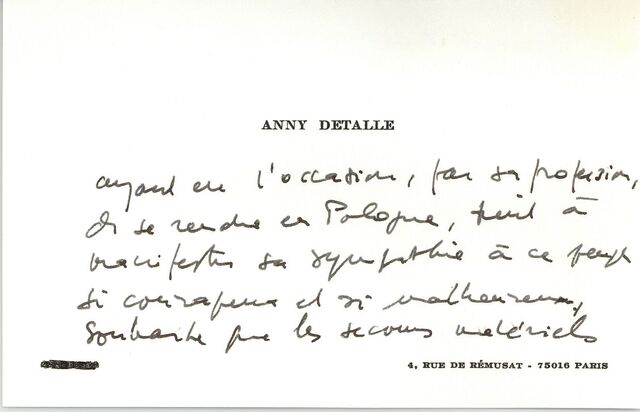 ANNY DETALLE
ayant eu l'occasion, par sa profession,
de se rendre en Pologne, tient à
manifester sa sympathie à ce peuple
si courageux et si malheureux,
souhaite que les secours matériels
4, RUE DE RÉMUSAT - 75016 PARIS